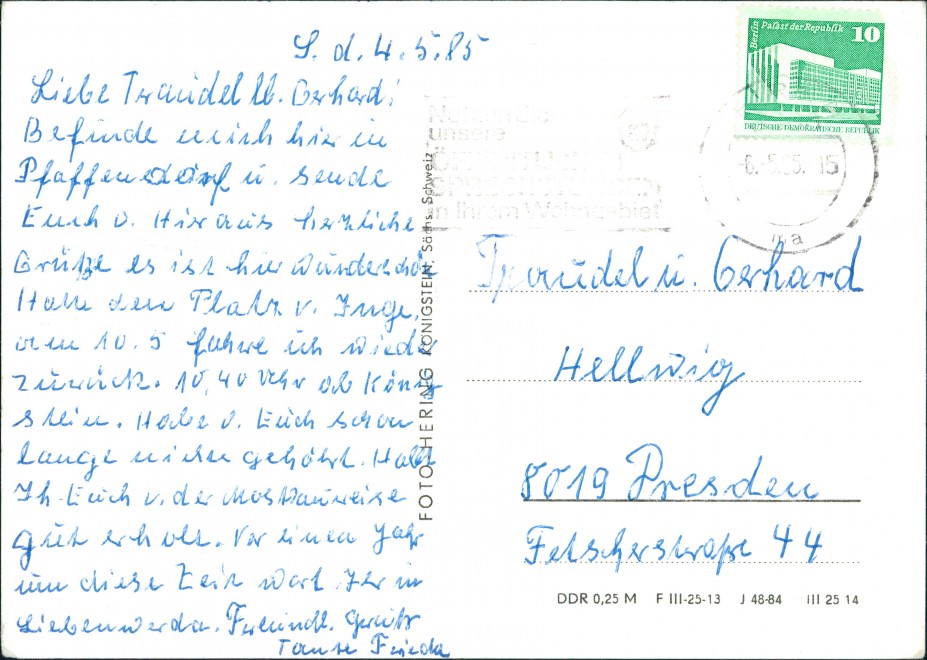 S. d. 4.5.85
Liebe Traudel lb. Gerhard!
Befinde mich hier in
Pfaffendorf u. sende
Euch v. Hir aus herzliche
Grüße es ist hier wunderschön
Hatte den Platz v. Inge,
am 10.5 fahre ich wieder
zurück. 10,40 Uhr ab König
stein. Habe v. Euch schon
lange nichts gehört. Habt
Ih Euch v. der Moskaureise
gut erholt. Vor einen Jahr
um diese Zeit wart Ihr in
Liebenwerda. Freundl. Grüße
Tante Frieda
FOTO-HERING KÖNIGSTEIN, Sächs. Schweiz
Berlin Palast der Republik 10
DEUTSCHE DEMOKRATISCHE REPUBLIK
unsere
in Ihrem Wohngebiet
-6.-5.85. 15
Traudel u. Gerhard
Hellwig
8019 Dresden
Fetscherstraße 44
DDR 0,25 M F III-25-13 J 48-84 III 25 14